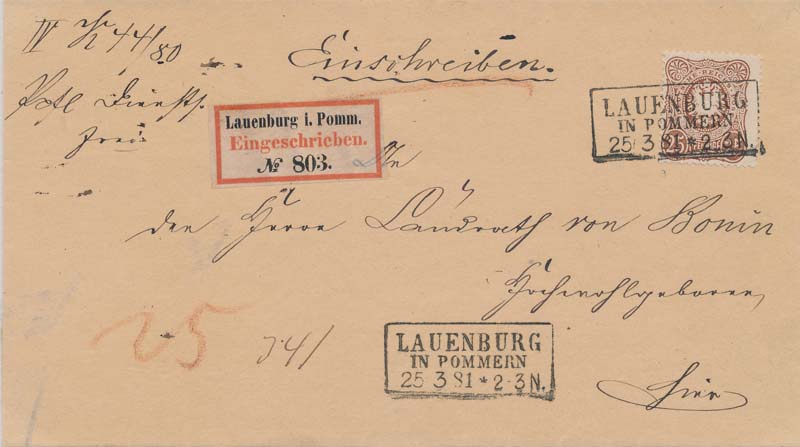 IV 44/80
Einschreiben.
frei
Lauenburg i. Pomm.
Eingeschrieben.
No 803.
An
LAUENBURG
IN POMMERN
25 3 81 * 2-3 N.
den Herrn Landrath von Bonin
Hochwohlgeboren,
25
341
LAUENBURG
IN POMMERN
25 3 81 * 2-3 N.
hier